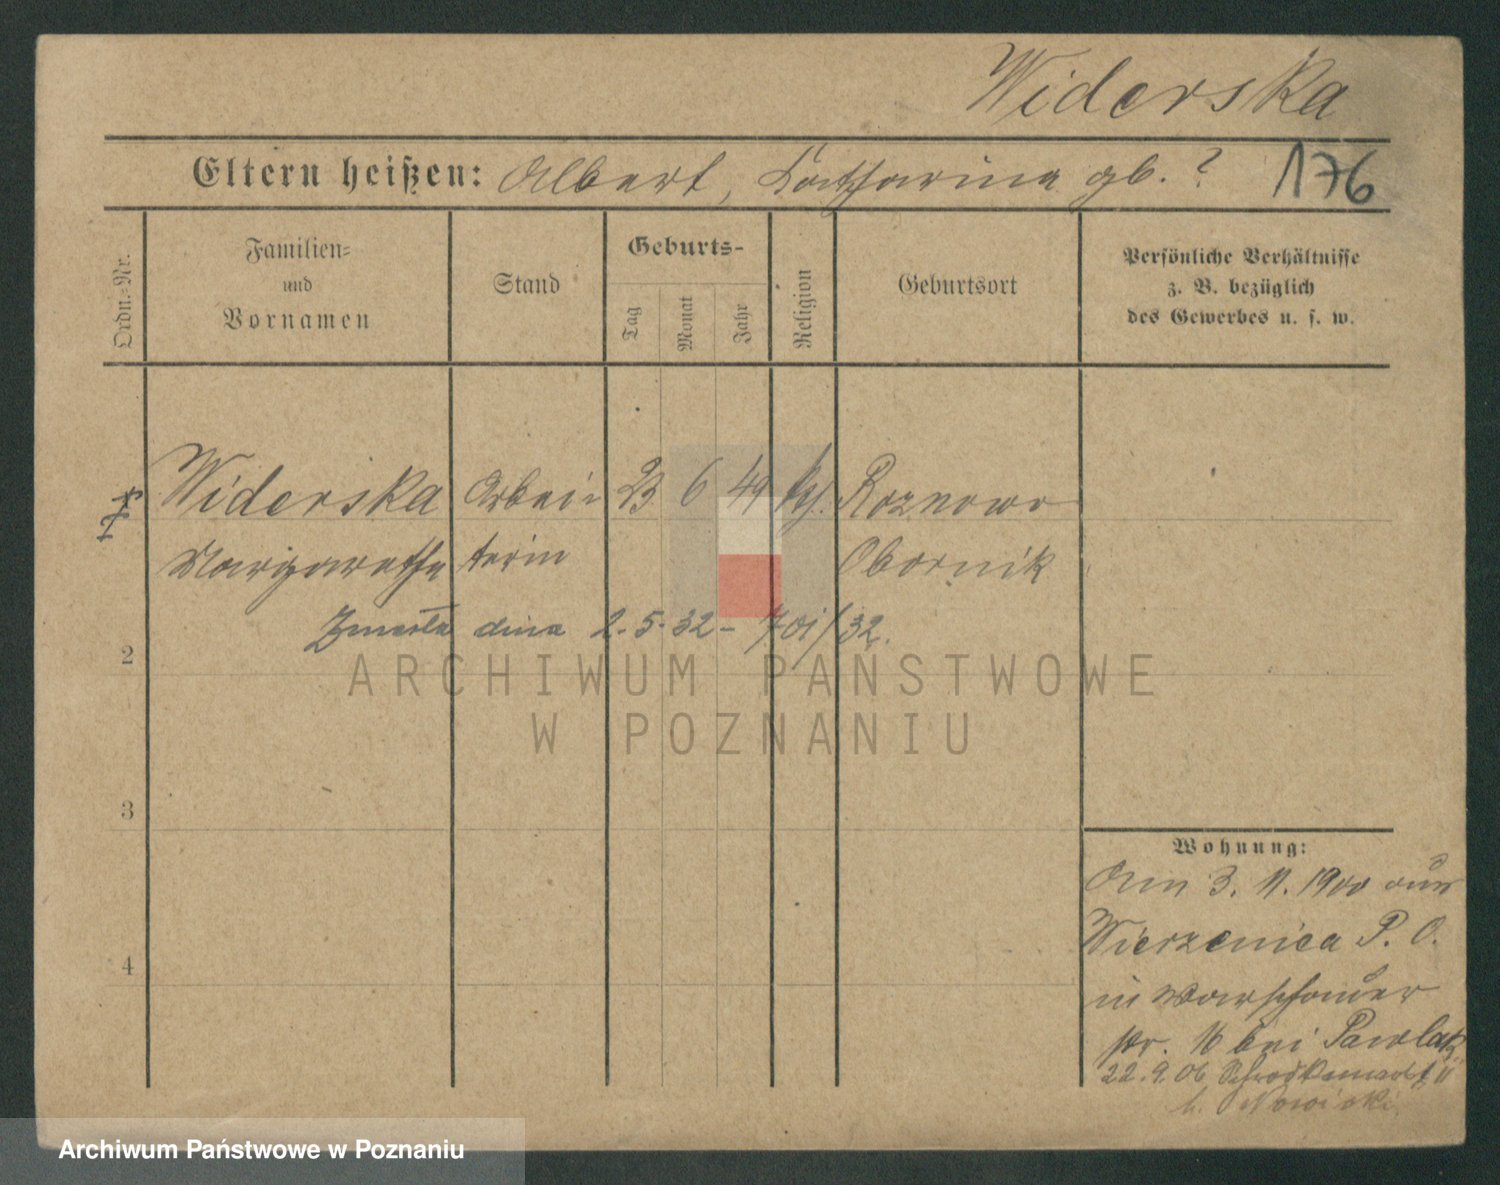 Widerska
Eltern heißen: Albert, Katharina gb. ? 176
Ordn.-Nr.
Familien-
und
Vornamen
Stand
Geburts-
Tag
Monat
Jahr
Religion
Geburtsort
Persönliche Verhältnisse
z. B. bezüglich
des Gewerbes u. s. w.
Widerska Arbei- 23 6 49 kth. Roznowo
Margarethe terin Obornik
Zmarła dnia 2.5.32 - 701/32.
2
ARCHIWUM PANSTWOWE
W POZNANIU
3
Wohnung:
Am 3. 11. 1900 aus
Wierzenica P. O.
4
in Warschauer
str. 16 bei Pawlak
22.9.06 Schrodkamarkt
b. Nowicki
Archiwum Państwowe w Poznaniu